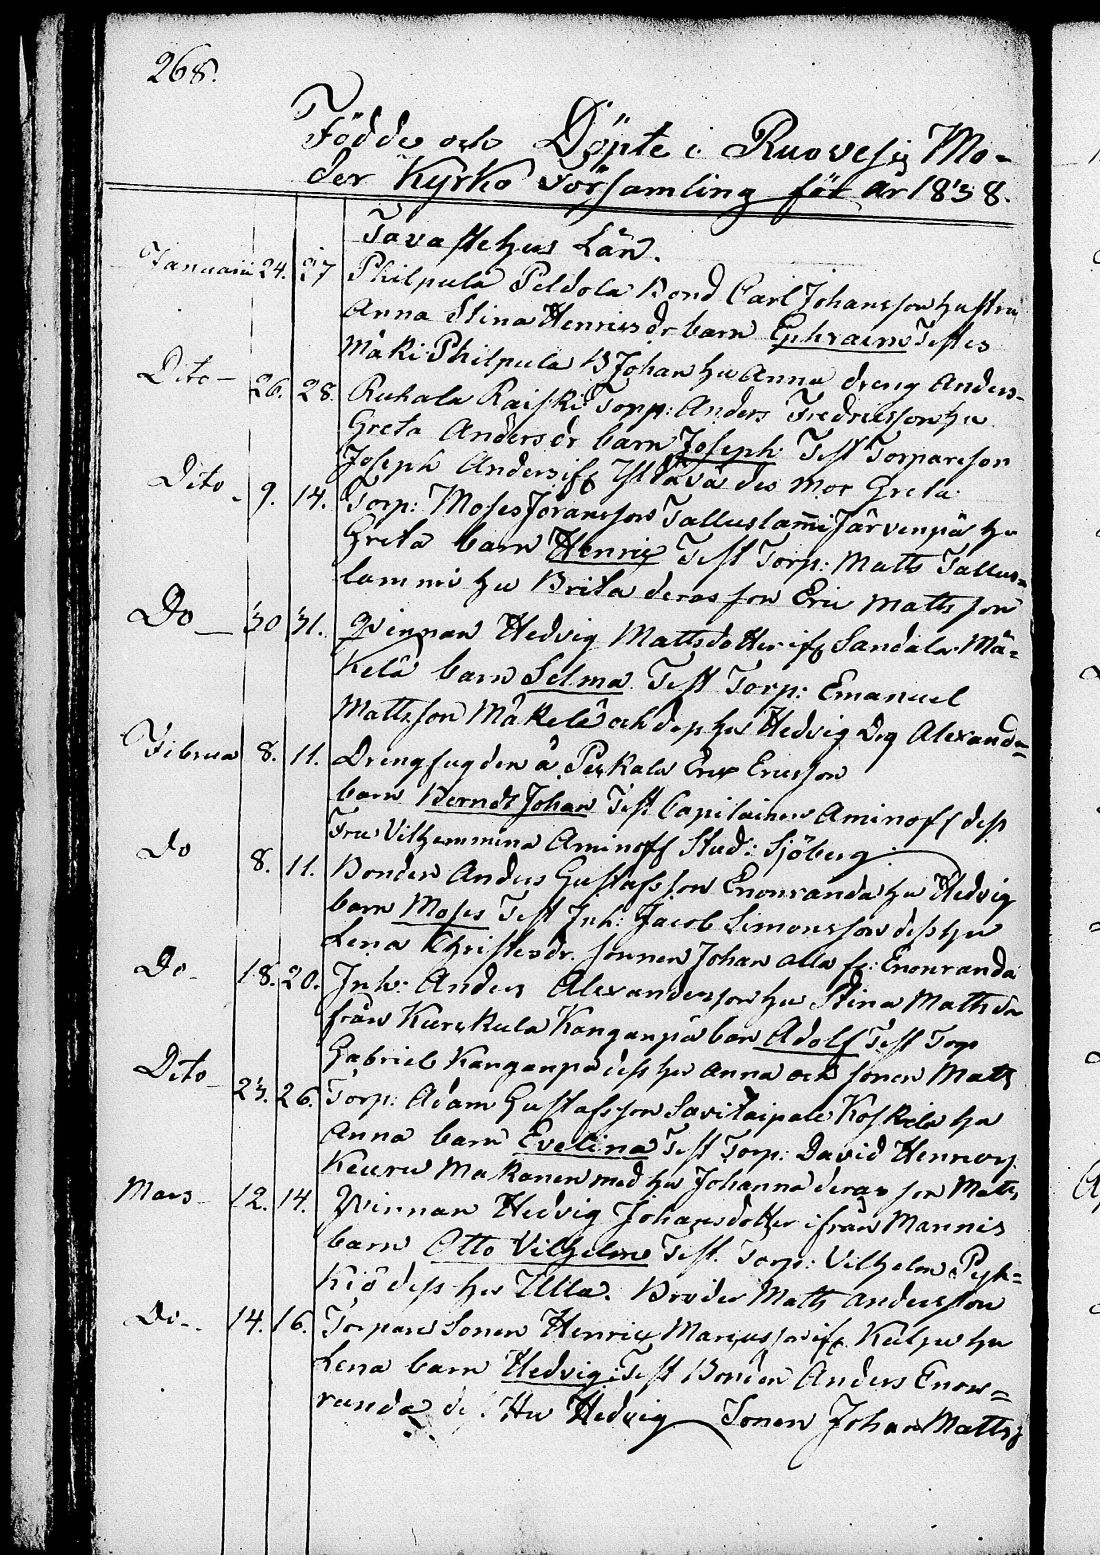 268.
Födde och Döpte i Ruovesi Mo-
der Kyrko Församling för år 1838.
Tavastehus Län.
Januarii 24. 27 Philpula Peldola Bond Carl Johansson hustru
Anna Stina Henricsdr barn Ephraim Testes
Mäki Philpula B Johan hu Anna dreng Anders
Dito - 26. 28. Ruhala Raiski Torp: Anders Fredricsson hu
Greta Andersdr barn Joseph Test Torpareson
Joseph Anders if des mor Greta
Dito - 9. 14. Torp: Moses Göransson Talluslammi Järvenpä hu
Greta barn Henrix Test Torp: Matts Tallus=
lammi hu Brita deras son Eric Mattsson
Do - 30 31. Qvinnan Hedvig Mattsdotter if Sandala Mä=
kelä barn Selma Test Torp: Emanuel
Mattsson Mäkelä och dess hu Hedvig Dg Alexand=
Februa 8. 11. Drengfugden å Pekkala Erix Ericsson
barn Berndt Johan Test Capitainen Aminoff dess
Fru Vilhemmina Aminoff Stud: Sjöberg
Do 8. 11. Bonden Anders Gustafsson Enonranda hu Hedvig
barn Moses Test Inh: Jacob Simonsson dess hu
Lena Christersdr. sonnen Johan alla fr: Enonranda
Do - 18. 20. Inh: Anders Alexandersson hu Stina Mattsda
från Kurkula Kanganpä bar Adolf Test Torp
Gabriel Kanganpä dess hu Anna och sonen Matts
Dito - 23. 26. Torp: Adam Gustafsson Savitaipale Koskela hu
Anna barn Evelina Test Torp: David Henrics
Keuru Makonen med hu Johanna deras son Matts
Mars 12. 14. Qvinnan Hedvig Johansdotter ifrån Mannis
barn Otto Vilhelm Test. Torp: Vilhelm Pyk=
kiö dess hu Ulla. Broder Matts Andersson
Do -. 14. 16. Torpare Sonen Henrix Marcusson if Kulju hu
Lena barn Hedvig: Test Bonden Anders Enon=
randa de Hu Hedvig Sonen Johan Matts